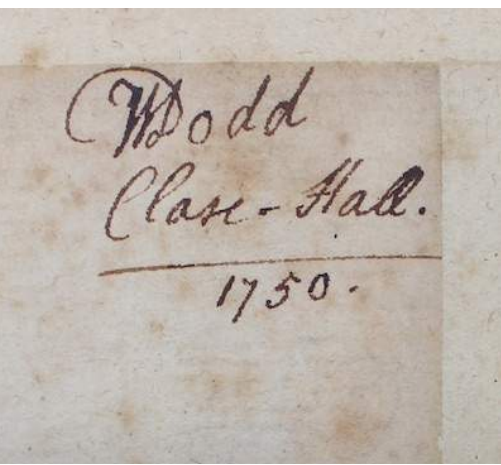 WDodd
Clare-Hall.
1750.